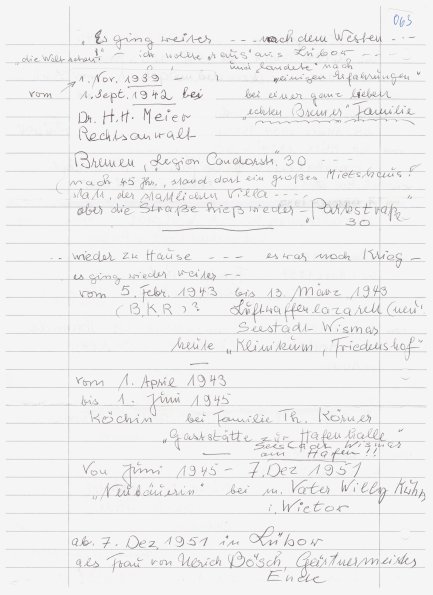 063
"Es ging weiter --- nach dem Westen ---
"die Welt sehen!" - ich wollte "raus" aus Lübow ---
und landete" nach
1. Nov. 1939 - "einigen Erfahrungen"
vom 1. Sept. 1942 bei bei einer ganz lieben
Dr. H.H. Meier "echten Bremer" Familie
Rechtsanwalt
Bremen, Legion Condorstr. 30 ---
(nach 45 Jhr., stand dort ein großes Mietshaus!
statt der stattlichen Villa ---
aber die Straße hieß wieder - "Parkstraße"
30
.. wieder zu Hause --- es war noch Krieg -
es ging wieder weiter --
vom 5. Febr. 1943 bis 13. März 1943
(B.K.R)? Luftwaffenlazarett (neu)
Seestadt Wismar
heute "Klinikum, Friedenshof"
vom 1. April 1943
bis 1. Juni 1945
Köchin bei Familie Th. Körner
"Gaststätte zur Hafenhalle"
Seestadt Wismar
am Hafen!!
Von Juni 1945 - 7. Dez 1951
"Neubäuerin" bei m. Vater Willy
i. Wietow
ab. 7. Dez 1951 in Lübow
als Frau von Ulrich Bösch, Gärtnermeister
Ende